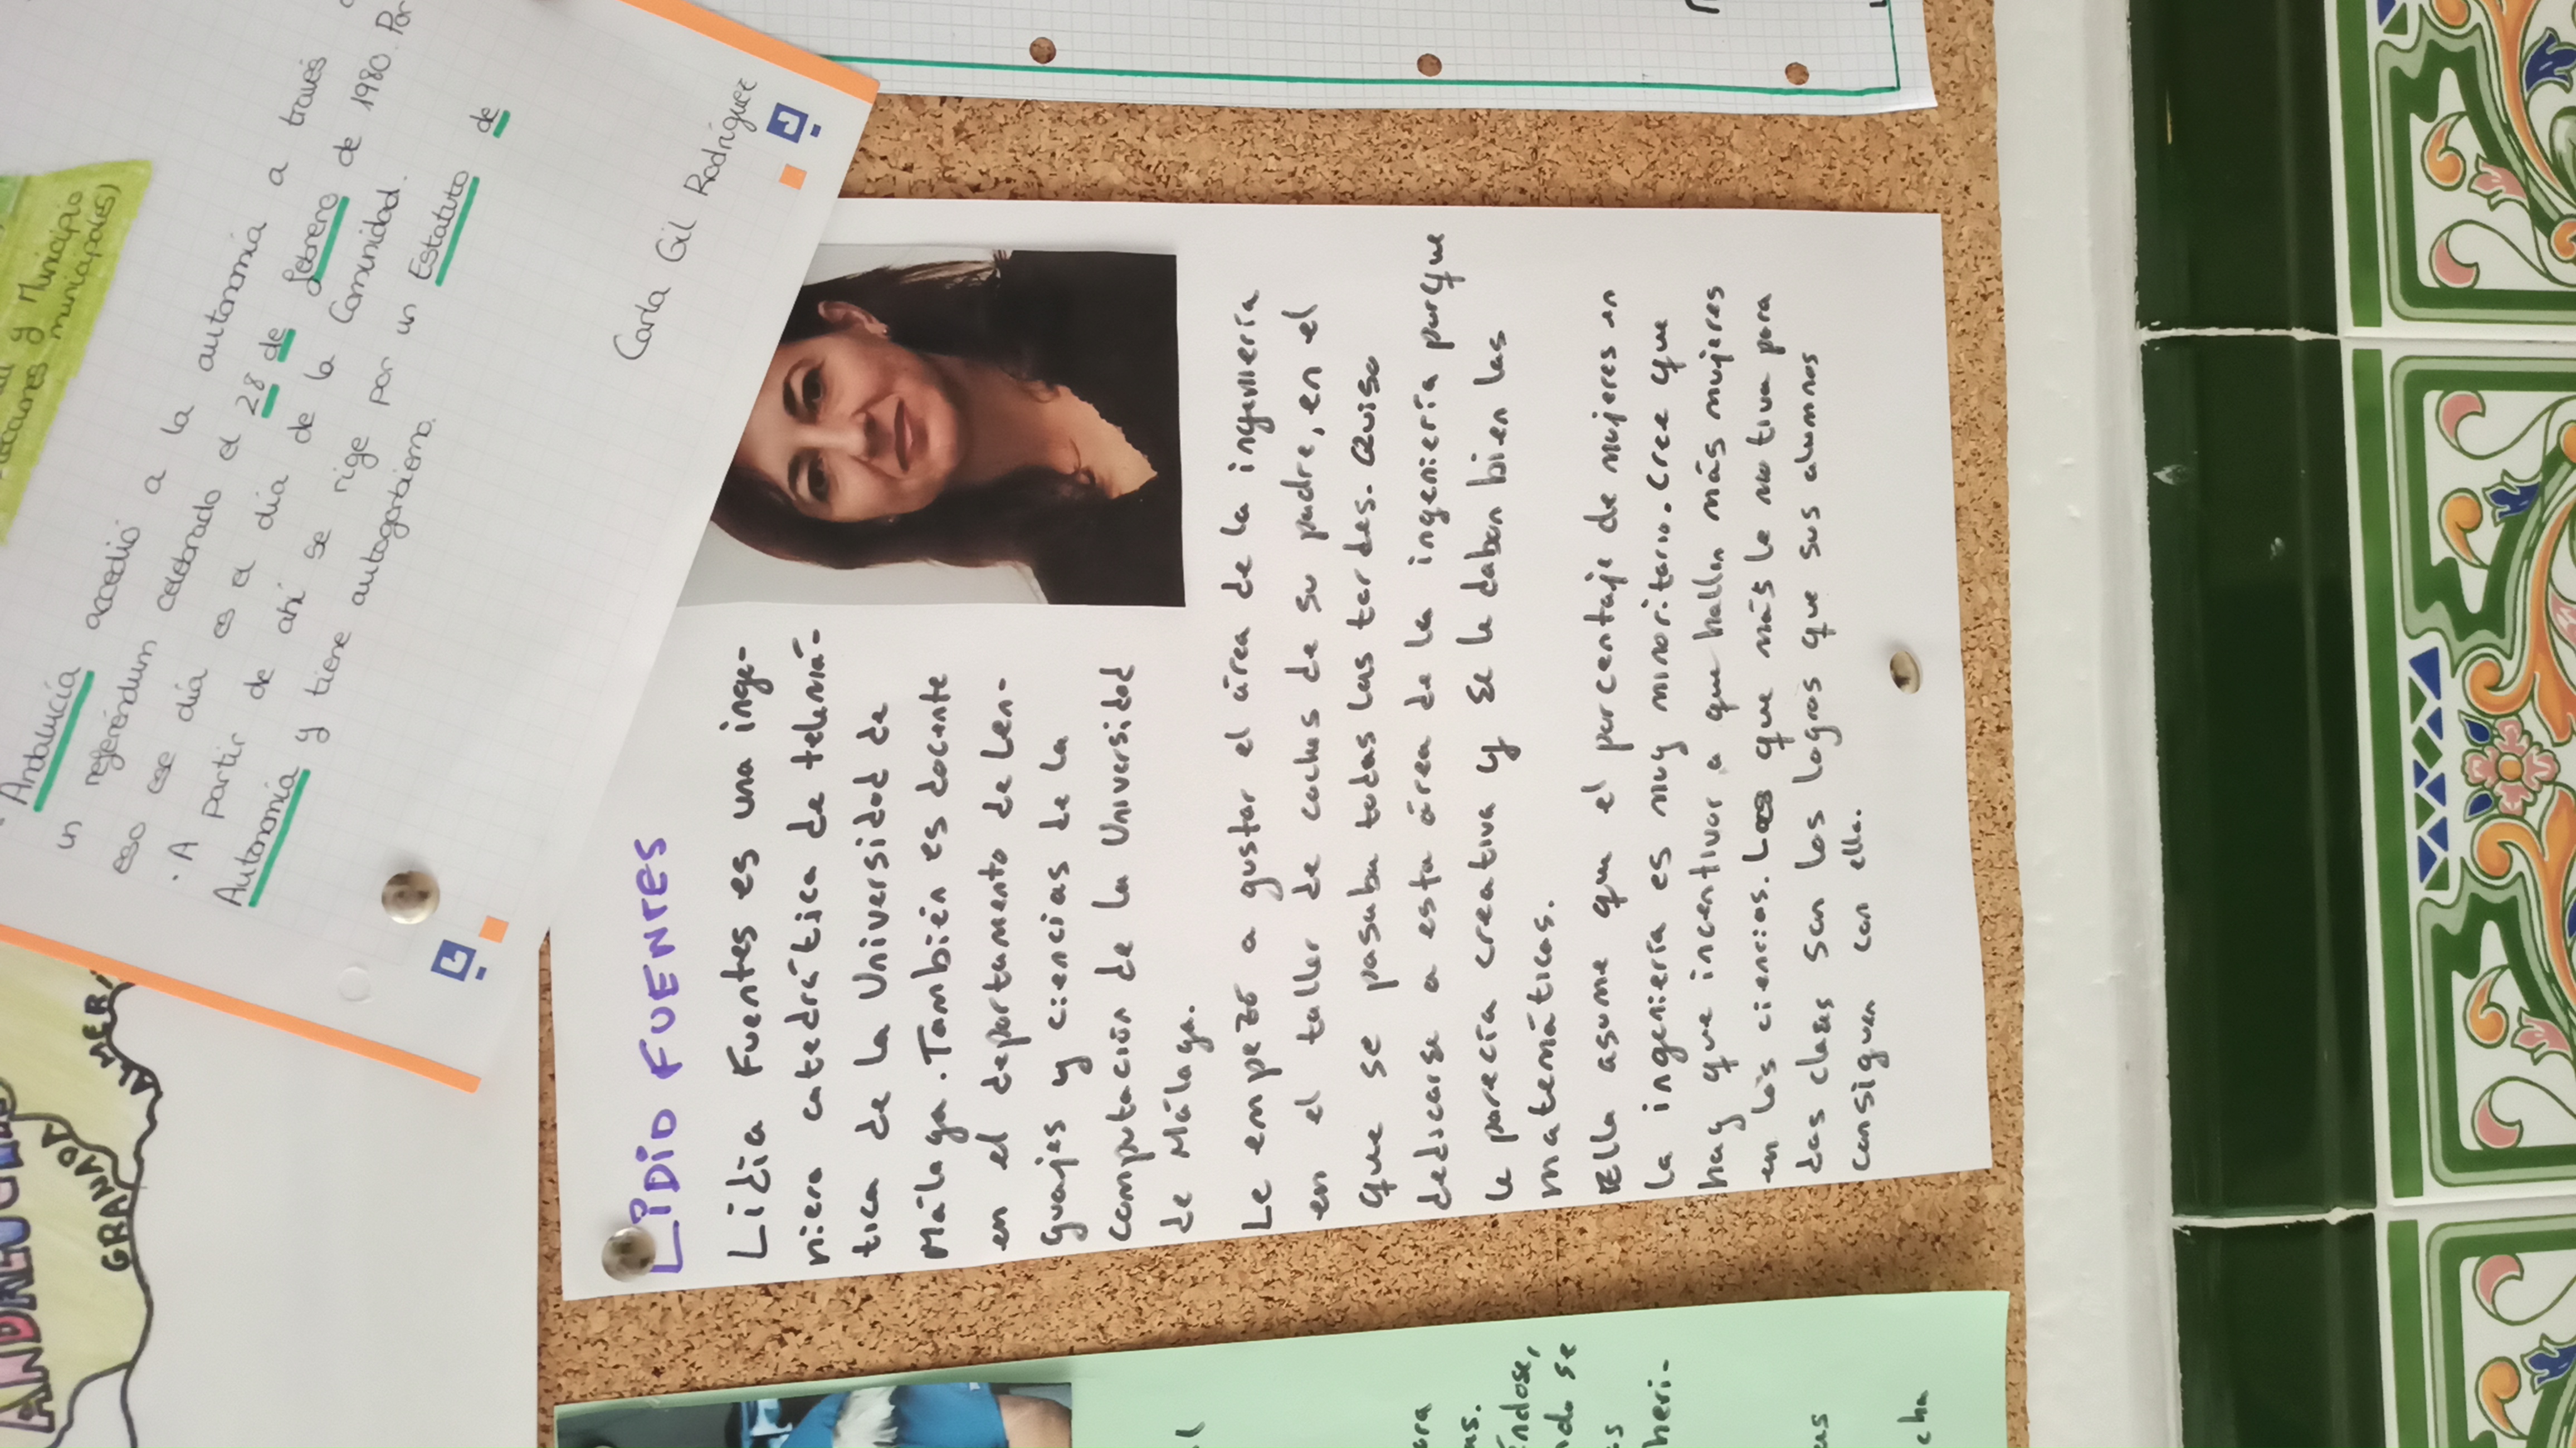 y Municipio
municipales)
Andalucía accedió a la autonomía a través
un referéndum celebrado el 28 de febrero de 1980. Por
eso ese día es el día de la Comunidad.
· A partir de ahí se rige por un Estatuto de
Autonomía y tiene autogobierno.
Carla Gil Rodríguez
GRANADA
ALMER
LiDiA FUENTES
Lidia Fuentes es una inge-
niera catedrática de telemá-
tica de la Universidad de
Málaga. También es docente
en el departamento de Len-
guajes y ciencias de la
computación de la Universidad
de Málaga.
Le empezó a gustar el área de la ingeniería
en el taller de coches de su padre, en el
que se pasaba todas las tardes. Quiso
dedicarse a esta área de la ingeniería porque
le parecía creativa y se le daban bien las
matemáticas.
Ella asume que el porcentaje de mujeres en
la ingeniería es muy minoritario. Cree que
hay que incentivar a que hallan más mujeres
en las ciencias. Los que más le motiva para
das clases son los logros que sus alumnos
consiguen con ella.
ándose,
heri-
cha